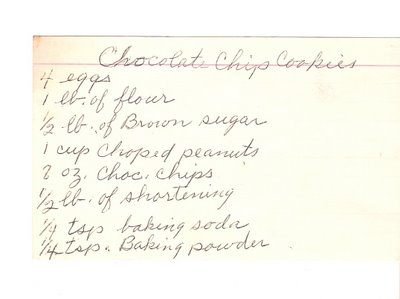 Chocolate Chip Cookies
4 eggs
1 lb. of flour
1/2 lb. of Brown sugar
1 cup Choped peanuts
oz. Choc. chips
1/2 lb. of shortening
1/4 tsp baking soda
1/4 tsp. Baking powder